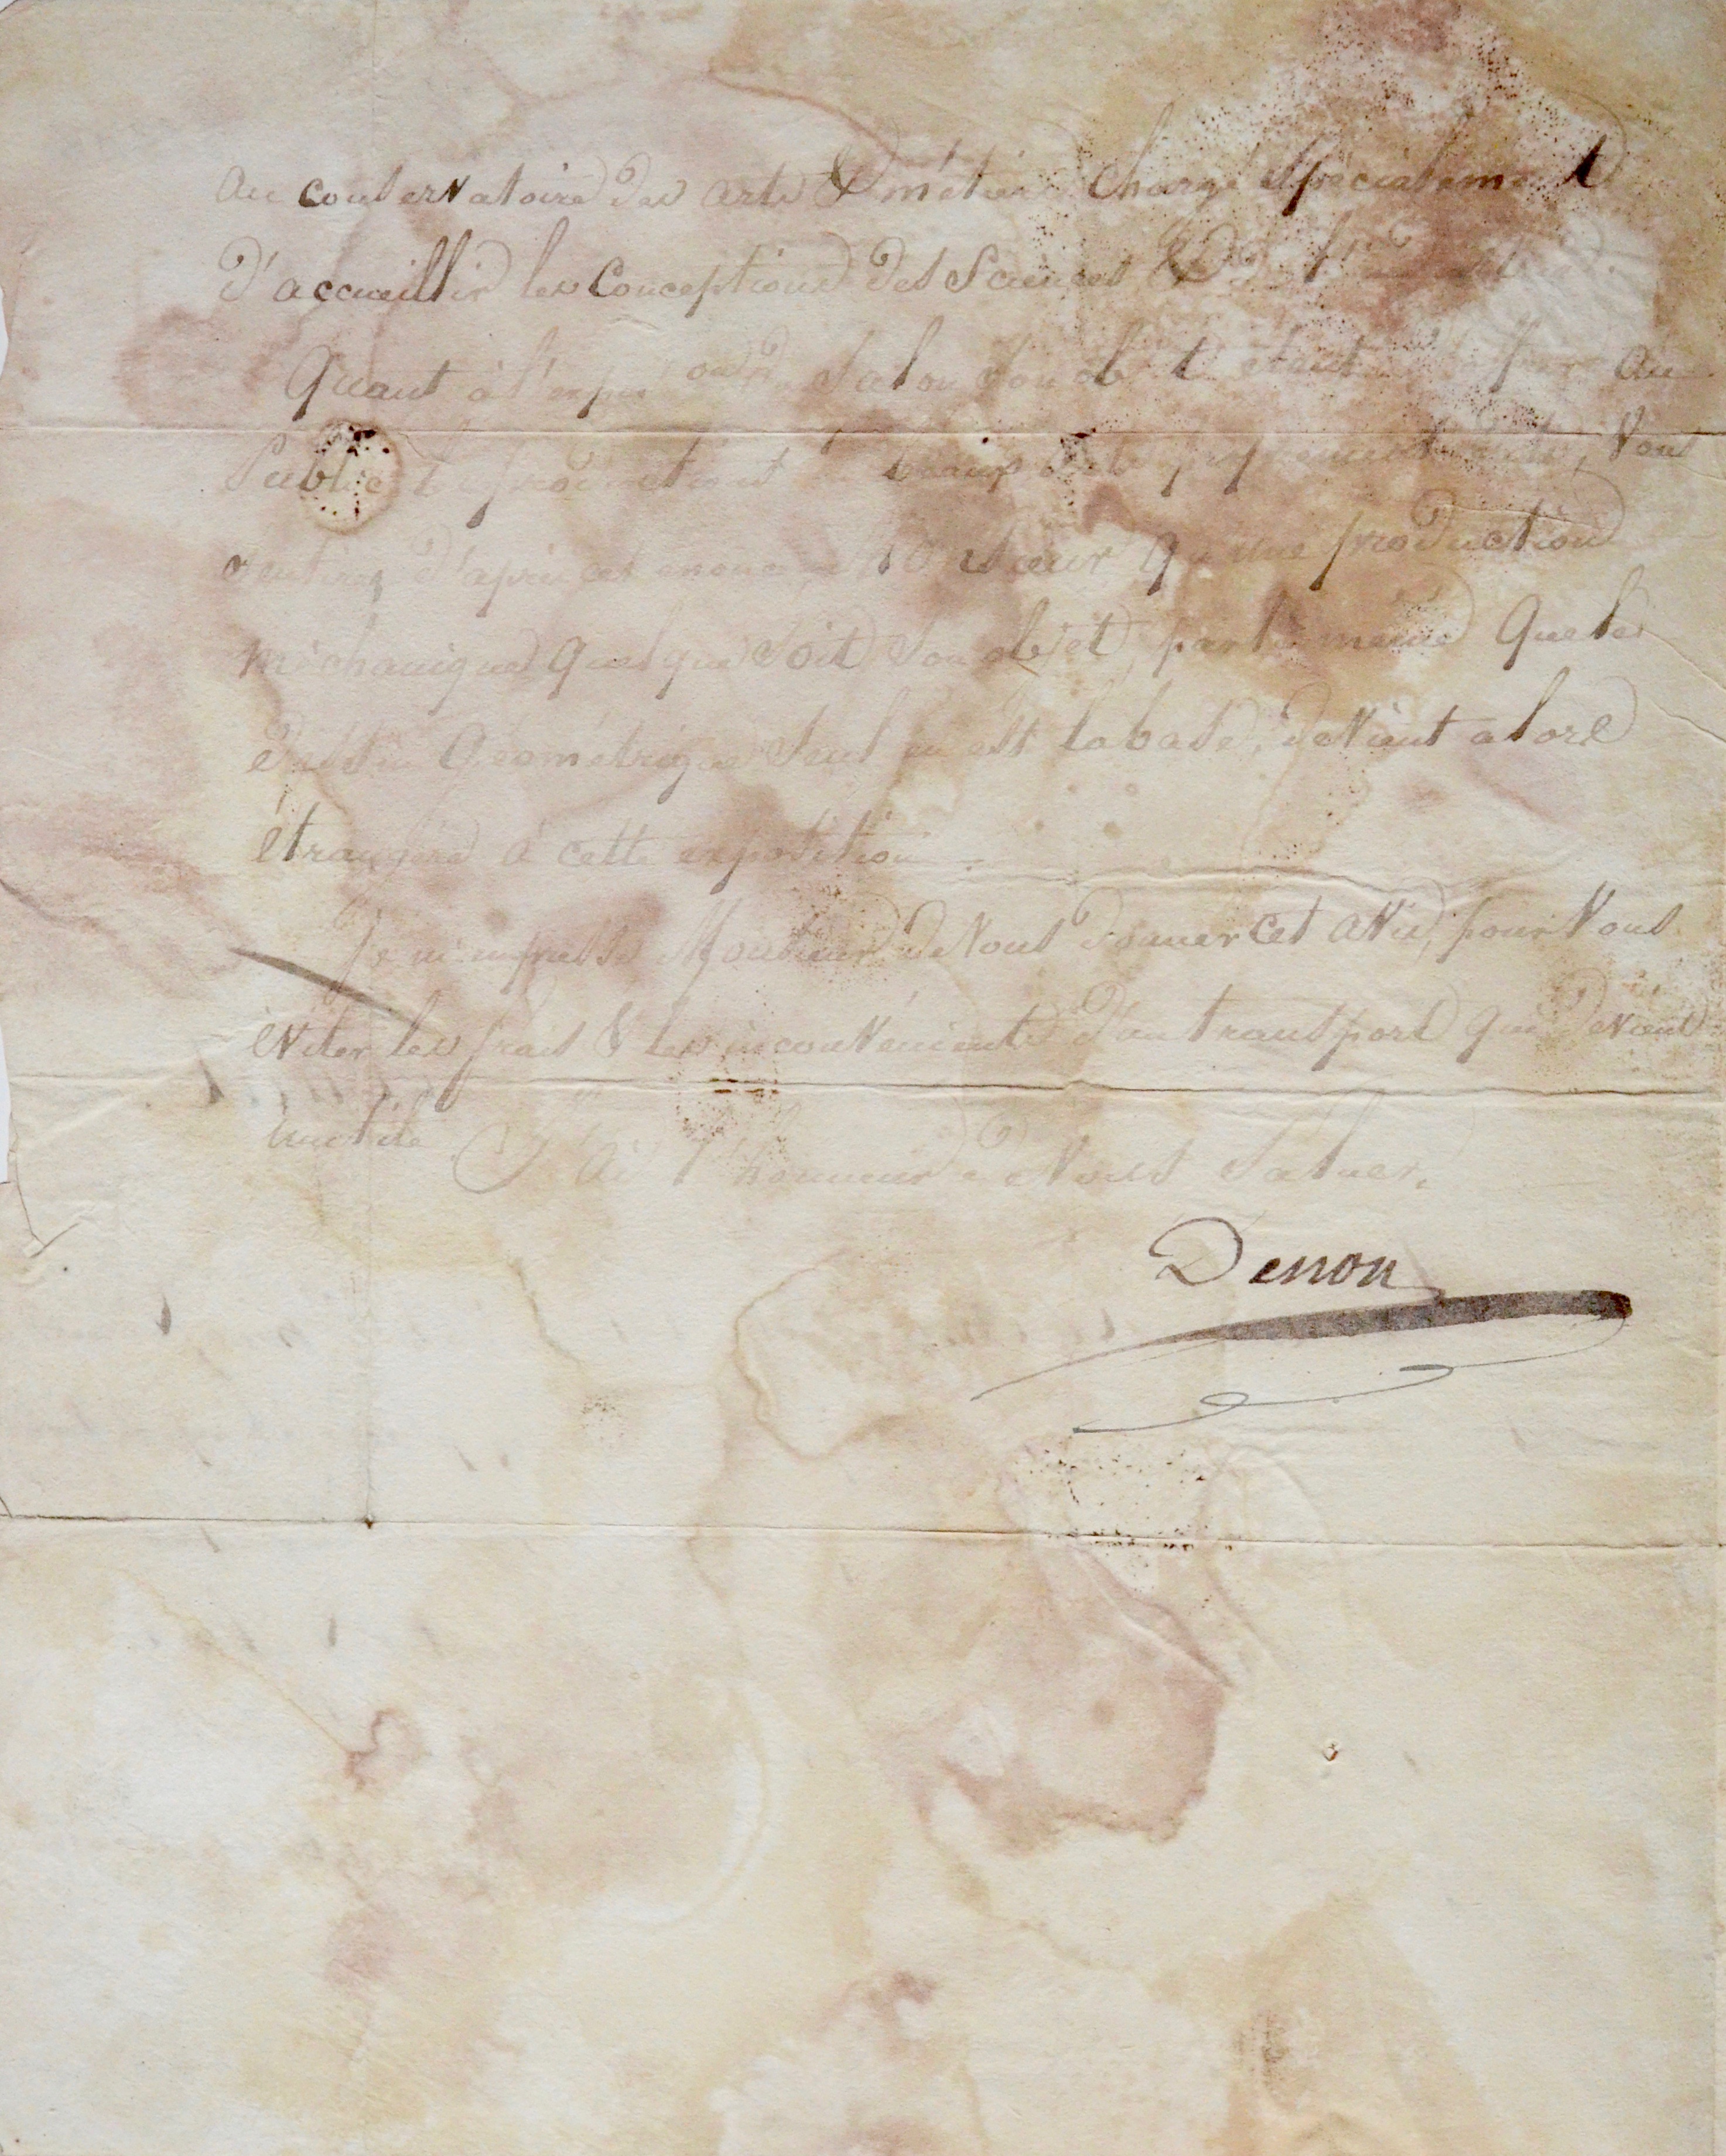 au conservatoire des arts & métiers chargé spécialement
d'accueillir les conceptions des Sciences &
Quant à l'expos.on du Salon son objet étant d'offrir au
Public les productions des beaux arts proprement dits, Vous
sentirez d'après cet énoncé, Monsieur, qu'une production
méchanique quelque soit son objet, par là même que le
dessin Géométrique seul en est la base, devient alors
étrangère à cette exposition.
Je m'empresse Monsieur de Vous donner cet avis, pour Vous
éviter les frais & les inconvénients d'un transport qui devient
inutile. J'ai l'honneur de Vous Saluer.
Denon